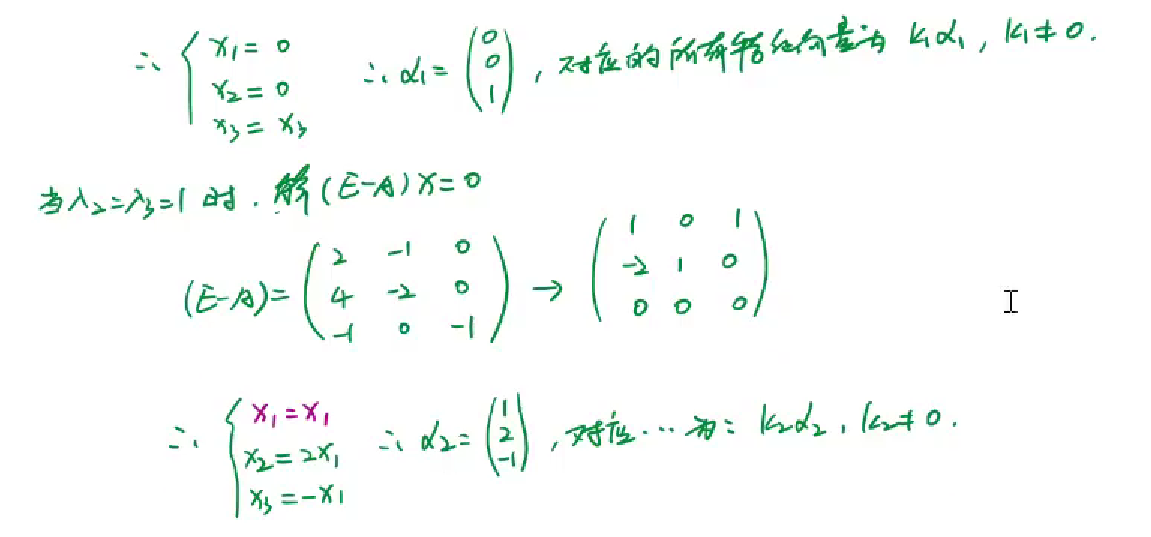 ∴ { x₁ = 0
x₂ = 0
x₃ = x₃ ∴ α₁ = (0 0 1), 对应的所有特征向量为 k₁α₁, k₁ ≠ 0.
当 λ₂=λ₃=1 时. 解 (E-A)X=0
(E-A)= (2 -1 0
4 -2 0
-1 0 -1) → (1 0 1
-2 1 0
0 0 0)
∴ { x₁ = x₁
x₂ = 2x₁
x₃ = -x₁ ∴ α₂ = (1 2 -1), 对应…为: k₂α₂, k₂ ≠ 0.